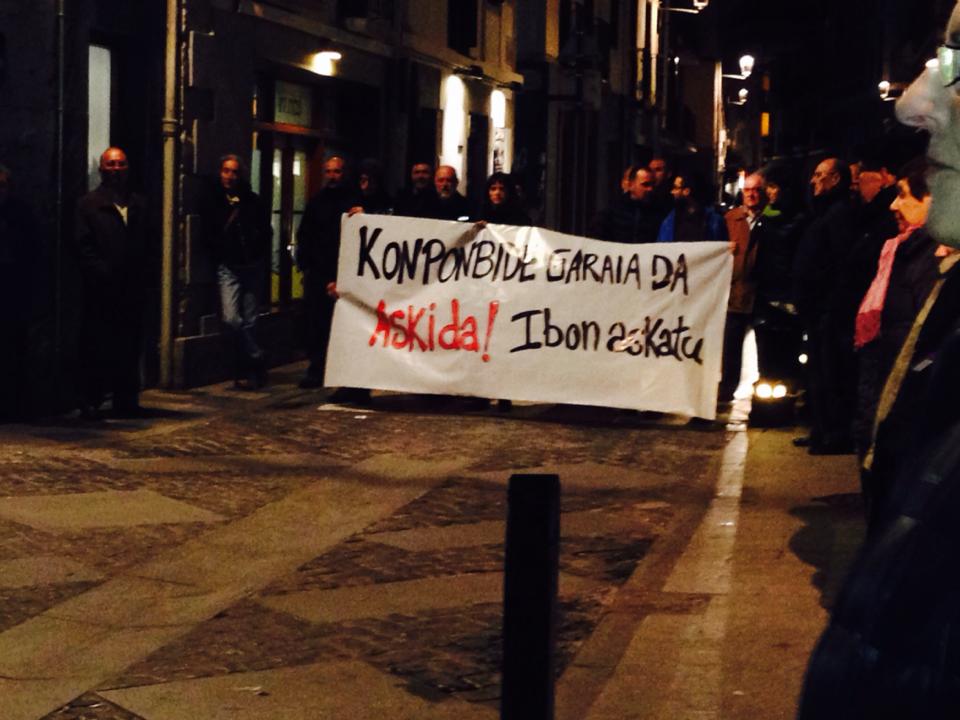 KONPONBIDE GARAIA DA
Askida! Ibon askatu